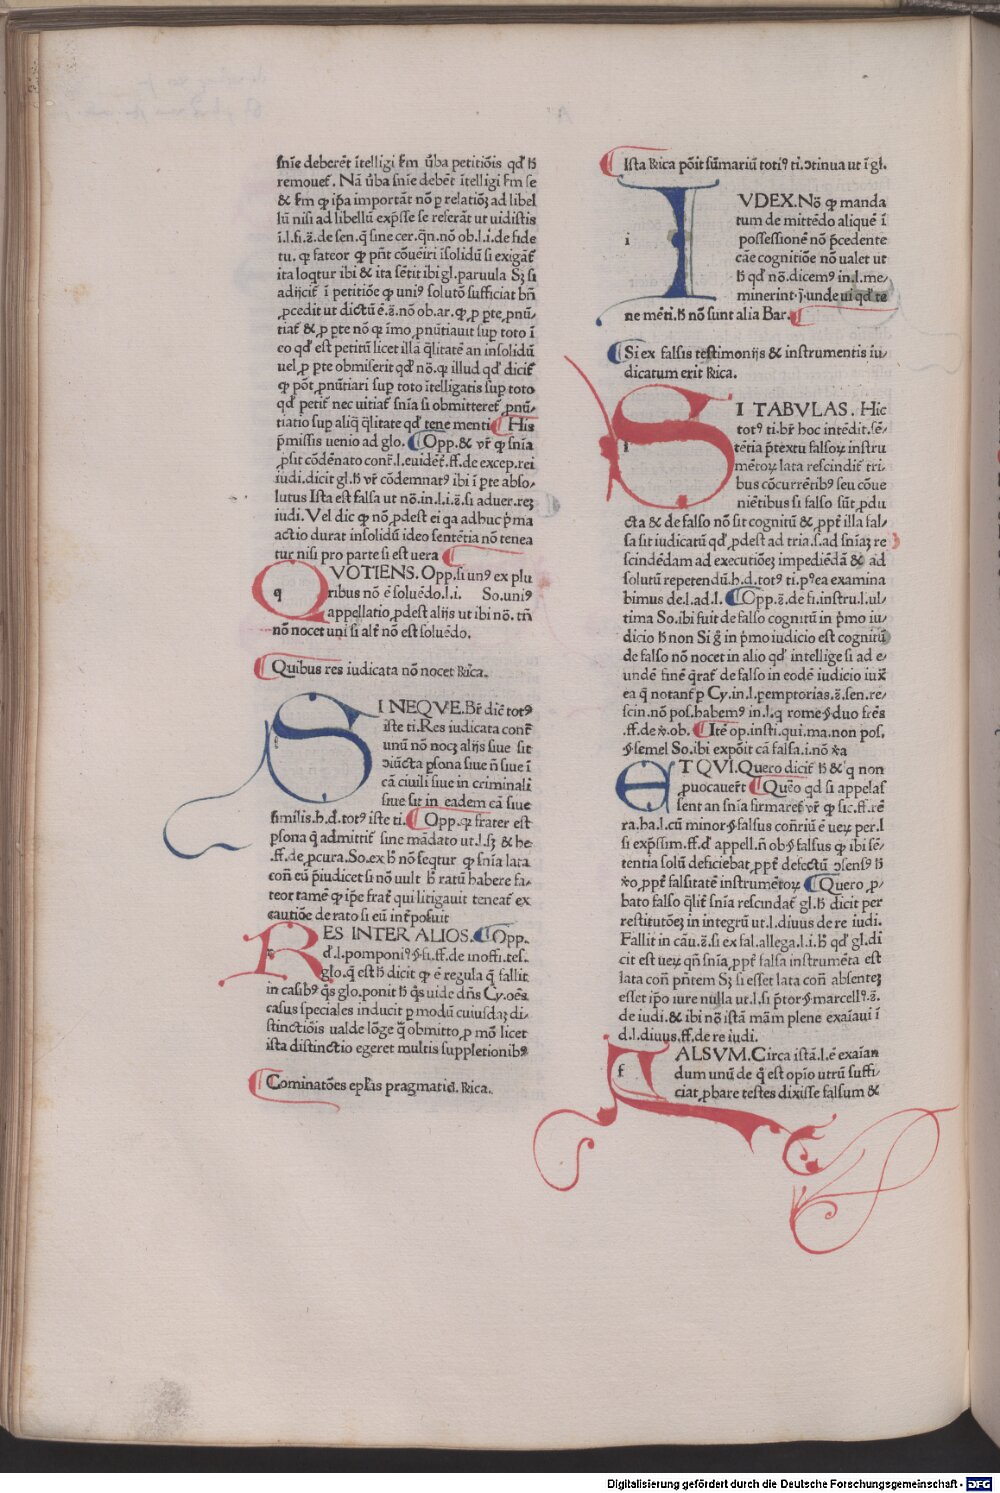 snīe deberēt ītelligi ẜm ūba petitiōis qd' ħ
remouet᷑. Nā ūba snīe debēt ītelligi ẜm se
& ẜm ꝙ ip̄a importāt nō ꝑ relatiōꝫ ad libel
lū nisi ad libellū exp̄sse se referāt ut uidistis
ī.l.fi.ꝫ̄.de sen.q̄ sine cer.q̄n.nō ob.l.i.de fide
tu. ꝙ fateor ꝙ pn̄t cōueīri īsolidū si exigāt᷑
ita loqtur ibi & ita sētit ibi gl.paruula Sꝫ si
adijcit᷑ ī petitiōe ꝙ uni⁹ solutō sufficiat bn̄
ꝓcedit ut dictū ē.ꝫ̄.nō ob.ar.ꝙ ꝑ ꝑte ꝓnū/
tiat᷑ & ꝑ ꝑte nō ꝙ īmo ꝓnūtiauit suꝑ toto ī
eo qd' est petitū licet illā q̄litatē an īsolidū
uel ꝑ ꝑte obmiserit qd' nō.ꝙ illud qd' dicit᷑
ꝙ pōt ꝓnūtiari suꝑ toto ītelligatis suꝑ toto
qd' petit᷑ nec uitiat᷑ snīa si obmitteret᷑ ꝓnū/
tiatio suꝑ aliq̄ q̄litate qd' tene menti His
p̄missis uenio ad glo. Opp.& vr̄ ꝙ snīa
ꝓsit cōdēnato cont̄.l.euidēt᷑.ff.de excep.rei
iudi.dicit gl.ħ vr̄ cōdemnat⁹ ibi ī ꝑte abso/
lutus Ista est falsa ut nō.in.l.i.ꝫ̄.si aduer.reꝫ
iudi. Vel dic ꝙ nō ꝓdest ei qa adhuc p̄ma
actio durat insolidū ideo sentētia nō tenea
tur nisi pro parte si est uera
q
QVOTIENS. Opp.si un⁹ ex plu
ribus nō ē soluēdo.l.i. So.uni⁹
appellatio ꝓdest alijs ut ibi nō. tn̄
nō nocet uni si alt̄ nō est soluēdo.
Quibus res iudicata nō nocet Rīca.
SI NEQVE. Br̄ dic̄ tot⁹
iste ti. Res iudicata cont̄
unū nō nocꝫ alijs siue sit
ɔiūcta ꝑsona siue n̄ siue ī
cā ciuili siue in criminali
siue sit in eadem cā siue
similis.h.d.tot⁹ iste ti. Opp.ꝙ frater est
ꝑsona q̄ admittit᷑ sine mādato ut.l.sꝫ & he
.ff.de ꝓcura.So.ex ħ nō seqtur ꝙ snīa lata
con̄ eū p̄iudicet si nō uult ħ ratū habere fa/
teor tamē ꝙ ip̄e frat᷑ qui litigauit teneat᷑ ex
cautiōe de rato si eū int̄posuit
RES INTER ALIOS. Opp.
d'.l.pomponi⁹.§.si.ff.de inoffi.tes.
glo.q̄ est ħ dicit ꝙ ē regula q̄ fallit
in casib⁹ q̄s glo.ponit ħ q̄s uide dn̄s Cy.oēs
casus speciales inducit ꝑ modū cuiusdaꝫ di/
stinctiōis ualde lōge q̄ obmitto ꝑ mō licet
ista distinctio egeret multis suppletionib⁹
Cominatōes ep̄las pragmatic̄. Rīca.
Ista Rīca pōit sūmariū toti⁹ ti.ɔtinua ut ī gl.
i
IVDEX. Nō ꝙ manda
tum de mittēdo aliquē ī
possessionē nō p̄cedente
cāe cognitiōe nō ualet ut
ħ qd' nō.dicem⁹ in.l.me/
minerint.j.unde ui qd' te
ne mēti.ħ nō sunt alia Bar.
Si ex falsis testimonijs & instrumentis iu/
dicatum erit Rīca.
SI TABVLAS. Hic
tot⁹ ti.br̄ hoc intēdit.sē/
tētia p̄textu falsoꝝ instru
mētoꝝ lata rescindit᷑ tri/
bus cōcurrētib⁹ seu cōue
niētibus si falso sūt ꝓdu
cta & de falso nō sit cognitū & ꝓpt̄ illa fal/
sa sit iudicatū qd' ꝓdest ad tria.s.ad snīaꝫ re
scindēdam ad executiōeꝫ impediēdā & ad
solutū repetendū.h.d.tot⁹ ti.p⁹ea examina
bimus de.l.ad.l. Opp.ꝫ̄.de fi.instru.l.ul/
tima So.ibi fuit de falso cognitū in p̄mo iu/
dicio ħ non Si g̊ in p̄mo iudicio est cognitū
de falso nō nocet in alio qd' intellige si ad e/
undē finē q̄rat᷑ de falso in eodē iudicio iux̄
ea q̄ notant᷑ ꝑ Cy.in.l.pemptorias.ꝫ̄.sen.re/
scin.nō pos.habem⁹ in.l.q rome.§.duo fr̄es
.ff.de v̊.ob. Itē op.insti.qui.ma.non pos.
§.semel So.ibi expōit cā falsa.i.nō v̊a
ET QVI. Quero dicit᷑ ħ & q non
ꝓuocauer̄t Quēo qd si appelas
sent an snīa firmaret᷑ vr̄ ꝙ sic.ff.rē
ra.ha.l.cū minor.§.falsus con̄riū ē ueꝝ per.l
si exp̄ssim.ff.d' appell.n̄ ob.§.falsus ꝙ ibi sē/
tentia solū deficiebat ꝓpt̄ defectū ɔsens⁹ ħ
v̊o ꝓpt̄ falsitatē instrumētoꝝ Quero ꝓ/
bato falso q̄lit᷑ snīa rescindat᷑ gl.ħ dicit per
restitutōeꝫ in integrū ut.l.diuus de re iudi.
Fallit in cāu.ꝫ̄.si ex fal.allega.l.i.ħ qd' gl.di
cit est ueꝝ qn̄ snīa ꝓpt̄ falsa instrumēta est
lata con̄ pn̄tem Sꝫ si esset lata con̄ absenteꝫ
esset ip̄o iure nulla ut.l.si p̄tor.§.marcell⁹.ꝫ̄.
de iudi.& ibi nō istā mām plene exaīaui ī
d.l.diuus.ff.de re iudi.
f
FALSVM. Circa istā.l.ē exaīan
dum unū de q̊ est opīo utrū suffi/
ciat ꝓbare testes dixisse falsum &
Digitalisierung gefördert durch die Deutsche Forschungsgemeinschaft - DFG